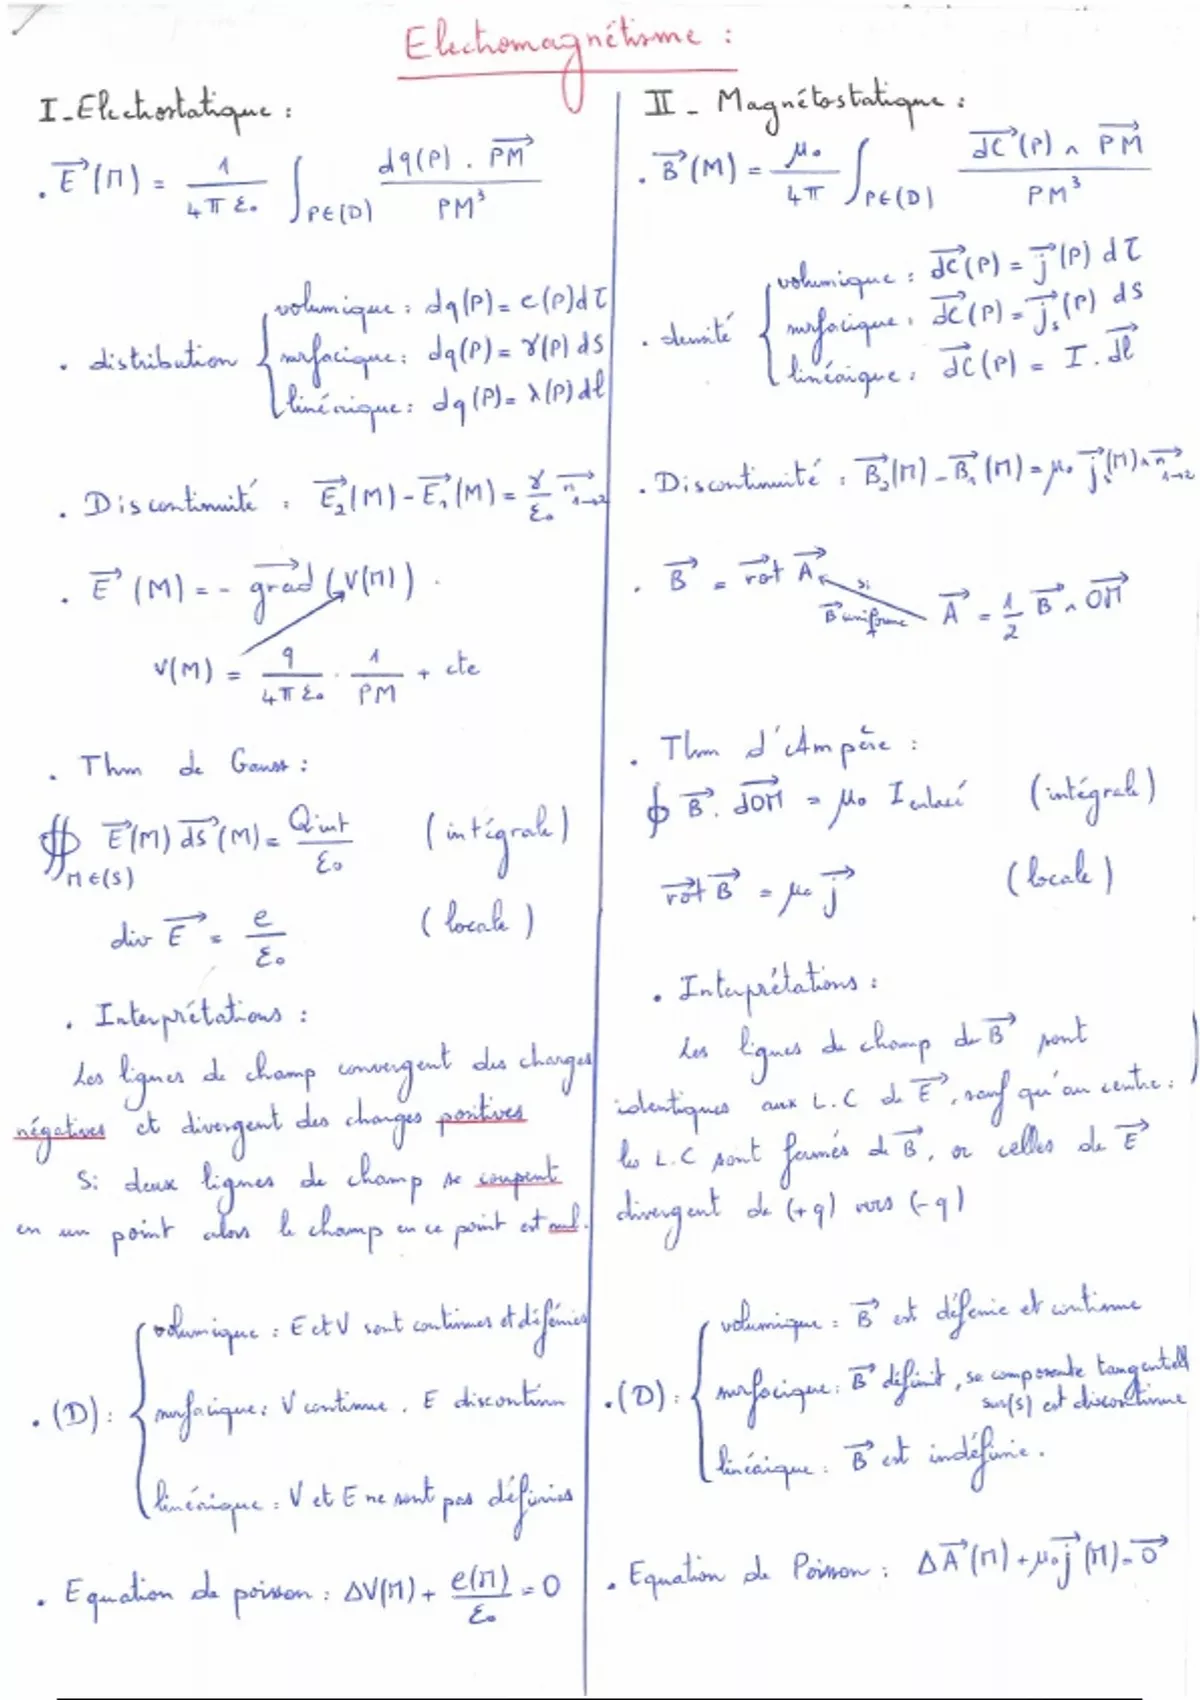 Electromagnétisme :
I - Electrostatique :
. E⃗(M) = 1/(4π ε₀) ∫_{P∈(D)} dq(P) . PM⃗ / PM³
. distribution { volumique : dq(P) = ρ(P)dτ
surfacique : dq(P) = γ(P) dS
linéaique : dq(P) = λ(P) dl
. Discontinuité : E⃗₂(M) - E⃗₁(M) = γ/ε₀ n⃗₁→₂
. E⃗(M) = - grad⃗ (V(M)) .
V(M) = q/(4π ε₀) . 1/PM + cte
. Thm de Gauss :
∯_{M∈(S)} E⃗(M) dS⃗(M) = Qint/ε₀ (intégrale)
div E⃗ = ρ/ε₀ (locale)
. Interprétations :
Les lignes de champ convergent des charges
négatives et divergent des charges positives
Si deux lignes de champ se coupent
en un point alors le champ en ce point est nul.
. (D) : { volumique : E et V sont continues et définies
surfacique : V continue . E discontinu
linéaique : V et E ne sont pas définies
. Equation de poisson : ΔV(M) + ρ(M)/ε₀ = 0
II - Magnétostatique :
. B⃗(M) = μ₀/4π ∫_{P∈(D)} dC⃗(P) ∧ PM⃗ / PM³
. densité { volumique : dC⃗(P) = j⃗(P) dτ
surfacique : dC⃗(P) = j⃗ₛ(P) dS
linéaique : dC⃗(P) = I . dl⃗
. Discontinuité : B⃗₂(M) - B⃗₁(M) = μ₀ j⃗ₛ(M) ∧ n⃗₁→₂
. B⃗ = rot⃗ A⃗ si B⃗ uniforme A⃗ = 1/2 B⃗ ∧ OM⃗
. Thm d'Ampère :
∮ B⃗ . dOM⃗ = μ₀ I enlacé (intégrale)
rot⃗ B⃗ = μ₀ j⃗ (locale)
. Interprétations :
Les lignes de champ de B⃗ sont
identiques aux L.C de E⃗, sauf qu'au centre :
les L.C sont fermés de B⃗, or celles de E⃗
divergent de (+q) vers (-q)
. (D) : { volumique : B⃗ est défenie et continue
surfacique : B⃗ définit, sa composante tangentiell
sur(S) est discontinue
linéaique : B⃗ est indéfinie .
. Equation de Poisson : ΔA⃗(M) + μ₀ j⃗(M) = 0⃗